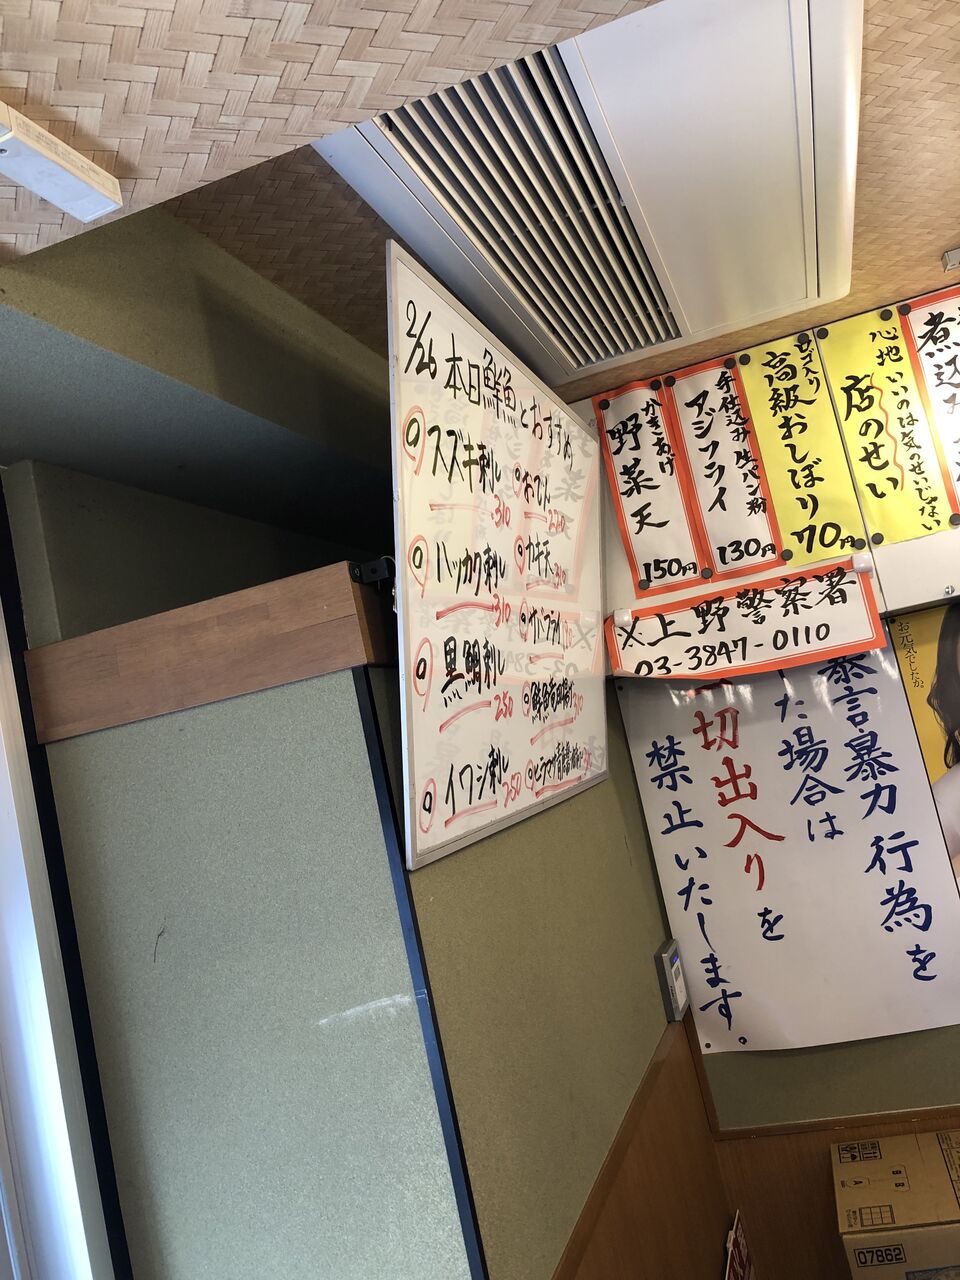 2/26 本日鮮魚とおすすめ
スズキ刺し
310
ハッカク刺し
310
黒鯛刺し
250
イワシ刺し
250
おでん
220
カキ天
310
310
かきあげ
野菜天
150円
手仕込み 生パン粉
アジフライ
130円
高級おしぼり
70円
心地いいのは気のせいじゃない
店のせい
煮込み
※上野警察署
03-3847-0110
暴言暴力行為を
した場合は
一切出入りを
禁止いたします。
お元気でしたか。
07862